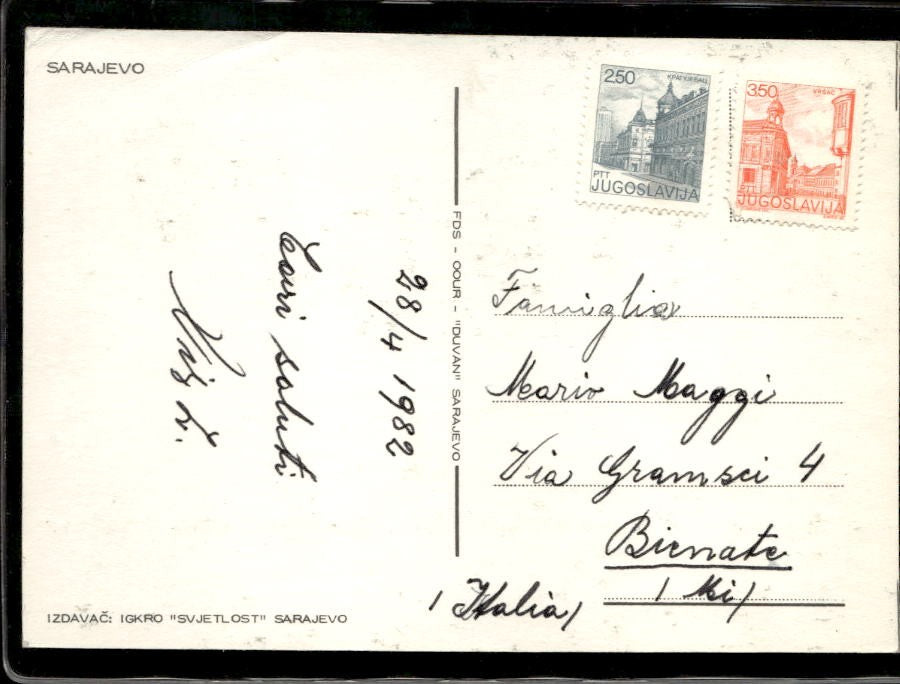 SARAJEVO
28/4 1982
Cari saluti
IZDAVAČ: IGKRO "SVJETLOST" SARAJEVO
FDS - OOUR - "DUVAN" SARAJEVO
2.50
КРАГУЈЕВАЦ
PTT
JUGOSLAVIJA
3.50
VRŠAC
PTT
JUGOSLAVIJA
Famiglia
Mario Maggi
Via Gramsci 4
Bienate
(Mi)
(Italia)